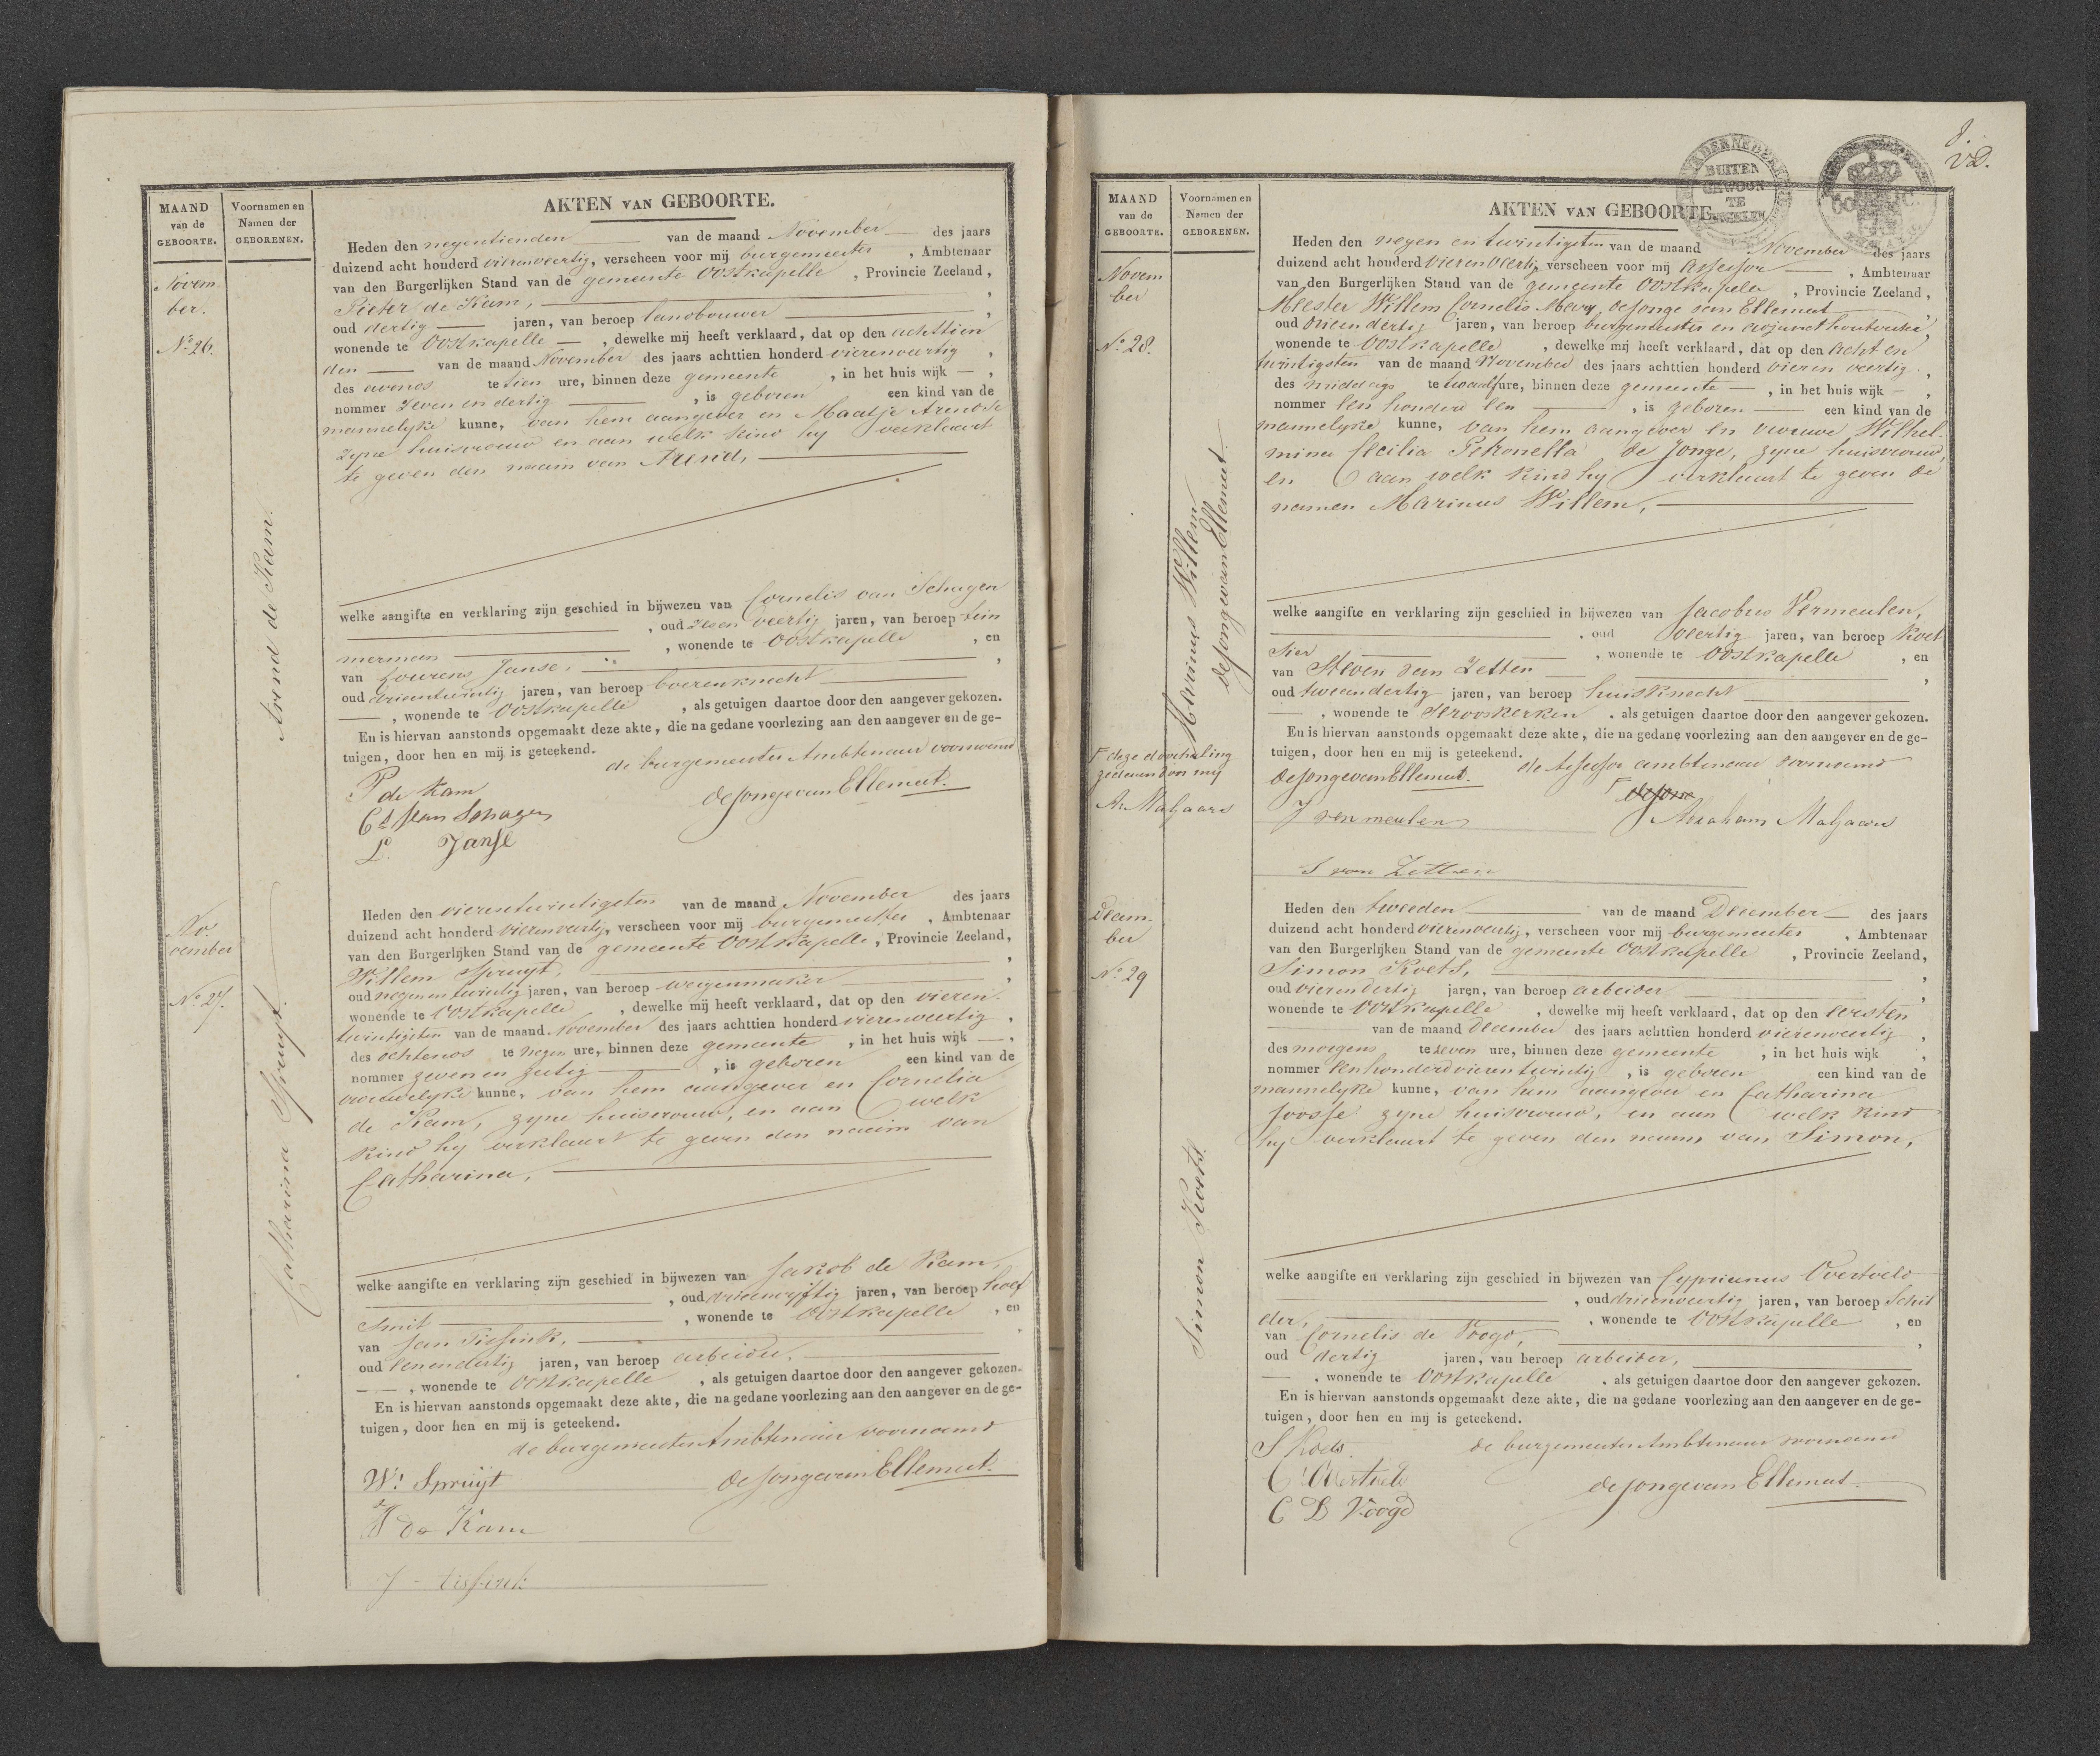 AKTEN VAN GEBOORTE.
MAAND
van de
GEBOORTE.
Voornamen en
Namen der
GEBORENEN.
Novem
ber.
No 26.
Arend de Kam.
Heden den negentienden van de maand November des jaars
duizend acht honderd vierenveertig, verscheen voor mij burgemeester, Ambtenaar
van den Burgerlijken Stand van de gemeente Oostkapelle, Provincie Zeeland,
Pieter de Kam,
oud dertig jaren, van beroep landbouwer
wonende te Oostkapelle, dewelke mij heeft verklaard, dat op den achttien
den van de maand November des jaars achttien honderd vierenveertig,
des avonds te tien ure, binnen deze gemeente, in het huis wijk —,
nommer zeven en dertig, is geboren een kind van de
mannelyke kunne, van hem aangever en Maatje Arendse
zyne huisvrouw en aan welk kind hy verklaart
te geven den naam van Arend,
welke aangifte en verklaring zijn geschied in bijwezen van Cornelis van Schagen
, oud zesenveertig jaren, van beroep tim
merman, wonende te Oostkapelle, en
van Lourens Janse,
oud drieentwintig jaren, van beroep boerenknecht
, wonende te Oostkapelle, als getuigen daartoe door den aangever gekozen.
En is hiervan aanstonds opgemaakt deze akte, die na gedane voorlezing aan den aangever en de ge-
tuigen, door hen en mij is geteekend.
de burgemeester Ambtenaar voornoemd
P de Kam
de Jonge van Ellemeet.
Cs van Schagen
L. Janse
No
vember
No 27.
Catharina Spruyt.
Heden den vierentwintigsten van de maand November des jaars
duizend acht honderd vierenveertig, verscheen voor mij burgemeester, Ambtenaar
van den Burgerlijken Stand van de gemeente Oostkapelle, Provincie Zeeland,
Willem Spruyt,
oud negenentwintig jaren, van beroep wagenmaker
wonende te Oostkapelle, dewelke mij heeft verklaard, dat op den vieren
twintigsten van de maand November des jaars achttien honderd vierenveertig,
des ochtends te negen ure, binnen deze gemeente, in het huis wijk —,
nommer zevenen, is geboren een kind van de
vrouwelyke kunne, van hem aangever en Cornelia
de Kam, zyne huisvrouw, en aan welk
kind hy verklaart te geven den naam van
Catharina,
welke aangifte en verklaring zijn geschied in bijwezen van Jakob de Kam,
, oud drieenvyftig jaren, van beroep hoef
smit, wonende te Oostkapelle, en
van Jan Tissink,
oud eenendertig jaren, van beroep arbeider,
, wonende te Oostkapelle, als getuigen daartoe door den aangever gekozen.
En is hiervan aanstonds opgemaakt deze akte, die na gedane voorlezing aan den aangever en de ge-
tuigen, door hen en mij is geteekend.
de burgemeester Ambtenaar voornoemd
Wm Spruijt
de Jonge van Ellemeet.
J de Kam
J Tissink
8.
BUITEN
GEWOON
TE
ZEGELEN
MAAND
van de
GEBOORTE.
Voornamen en
Namen der
GEBORENEN.
AKTEN VAN GEBOORTE.
Novem
ber
No 28.
Marinus Willem
de Jonge van Ellemeet.
Heden den negen en twintigsten van de maand November des jaars
duizend acht honderd vierenveertig, verscheen voor mij assessor, Ambtenaar
van den Burgerlijken Stand van de gemeente Oostkapelle, Provincie Zeeland,
Meester Willem Cornelis Mary de Jonge van Ellemeet
oud drieendertig jaren, van beroep burgemeester en adjunct houtvester
wonende te Oostkapelle, dewelke mij heeft verklaard, dat op den acht en
twintigsten van de maand November des jaars achttien honderd vieren veertig,
des middags te twaalf ure, binnen deze gemeente, in het huis wijk —,
nommer een honderd een, is geboren een kind van de
mannelyke kunne, van hem aangever en vrouwe Wilhel-
mina Cecilia Petronella de Jonge, zyne huisvrouw,
en aan welk kind hy verklaart te geven de
namen Marinus Willem,
welke aangifte en verklaring zijn geschied in bijwezen van Jacobus Vermeulen,
, oud veertig jaren, van beroep koet
sier, wonende te Oostkapelle, en
van Steven van Zetten
oud tweendertig jaren, van beroep huisknecht
, wonende te Serooskerken, als getuigen daartoe door den aangever gekozen.
En is hiervan aanstonds opgemaakt deze akte, die na gedane voorlezing aan den aangever en de ge-
tuigen, door hen en mij is geteekend.
de assessor ambtenaar voornoemd
de Jonge van Ellemeet.
de Jonge
deze doorhaling
A. Maljaars
J vermeulen
Abraham Maljaars
S van Zetten
Decem-
ber
No 29
Simon Koets.
Heden den tweeden van de maand December des jaars
duizend acht honderd vierenveertig, verscheen voor mij burgemeester, Ambtenaar
van den Burgerlijken Stand van de gemeente Oostkapelle, Provincie Zeeland,
Simon Koets,
oud vierendertig jaren, van beroep arbeider
wonende te Oostkapelle, dewelke mij heeft verklaard, dat op den eersten
van de maand December des jaars achttien honderd vierenveertig,
des morgens te zeven ure, binnen deze gemeente, in het huis wijk,
nommer eenhonderdvierentwintig, is geboren een kind van de
mannelyke kunne, van hem aangever en Catharina
Joosse zyne huisvrouw, en aan welk kind
hy verklaart te geven den naam van Simon,
welke aangifte en verklaring zijn geschied in bijwezen van Cyprianus Overtveld
, oud drieenveertig jaren, van beroep schil
der, wonende te Oostkapelle, en
van Cornelis de Voogd,
oud dertig jaren, van beroep arbeider,
, wonende te Oostkapelle, als getuigen daartoe door den aangever gekozen.
En is hiervan aanstonds opgemaakt deze akte, die na gedane voorlezing aan den aangever en de ge-
tuigen, door hen en mij is geteekend.
S Koets
de burgemeester Ambtenaar voornoemd
de Jonge van Ellemeet
C D Voogd